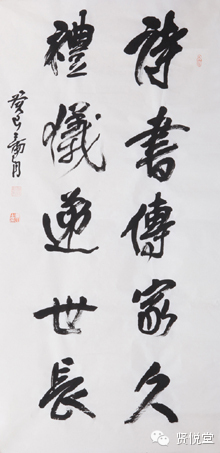 詩書傳家久
禮儀世長
癸巳月
贤悦堂